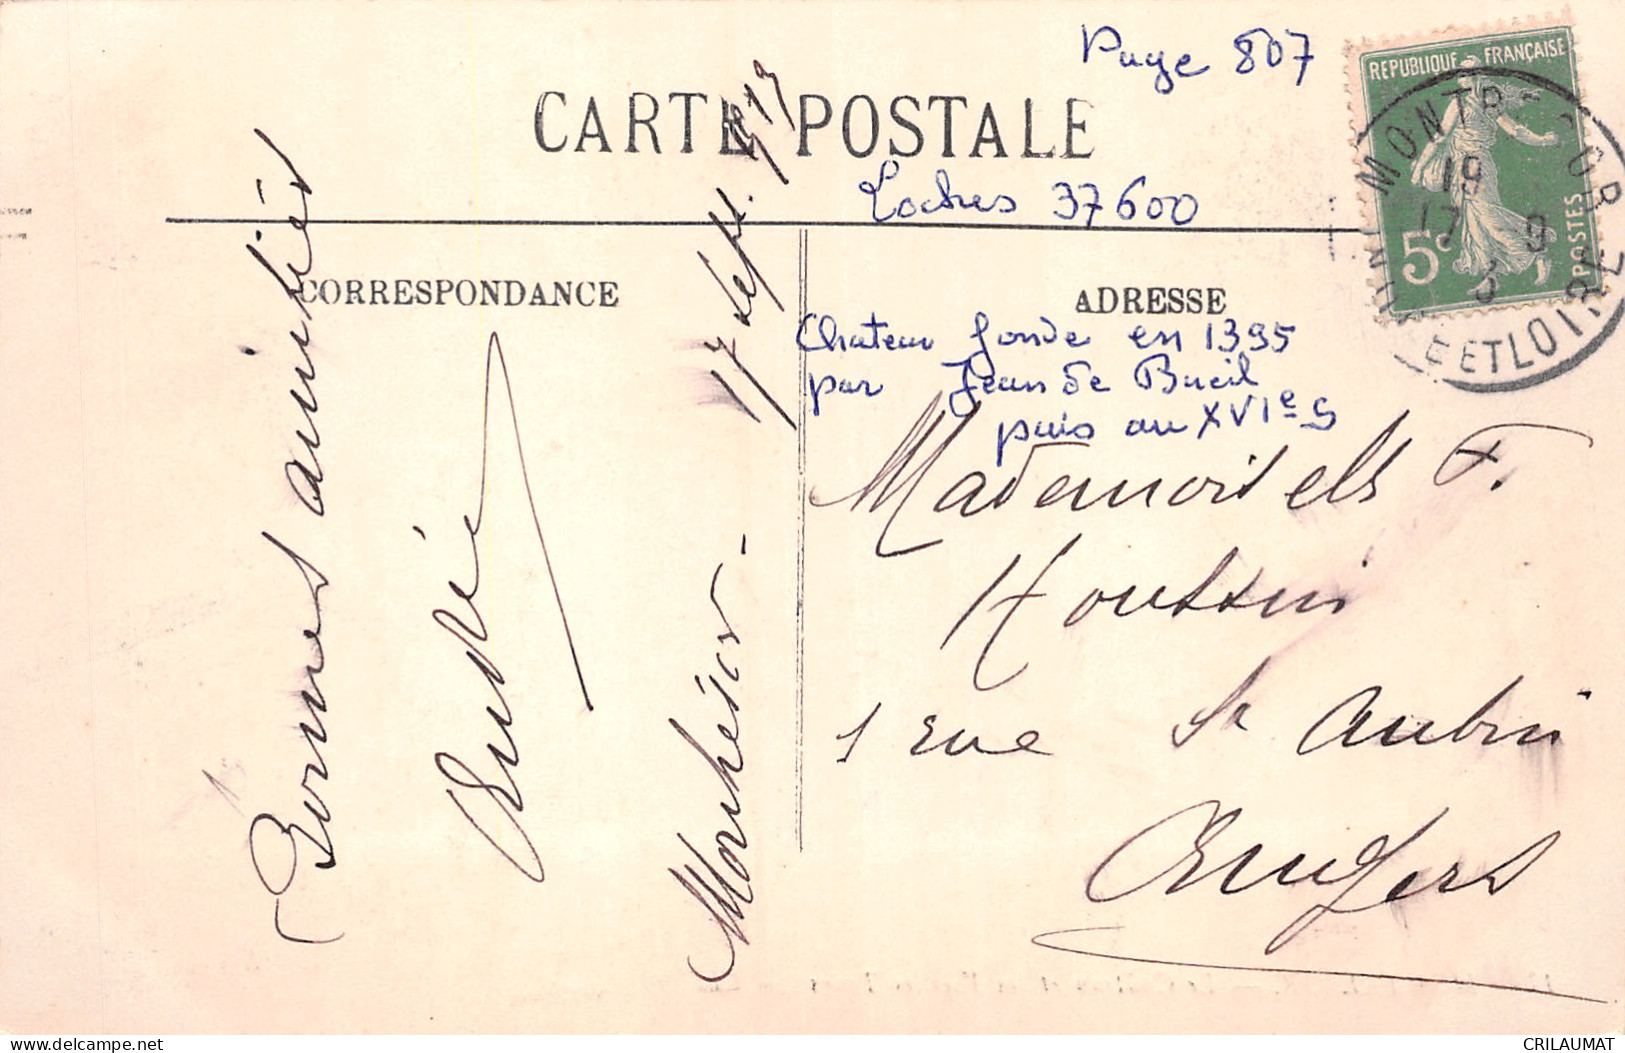 Page 807
CARTE POSTALE
Loches 37600
CORRESPONDANCE
ADRESSE
Chateau fonde en 1395
par Jean de Bueil
puis au XVIe S
REPUBLIQUE FRANÇAISE
5c POSTES
MONTR SOR
19
17 9
3
ET LOIRE
Mademoiselle F.
Houssin
1 rue St Aubin
Angers
Bonnes amitiés
Montrésor -
17 Sept. 1913
delcampe.net
CRILAUMAT